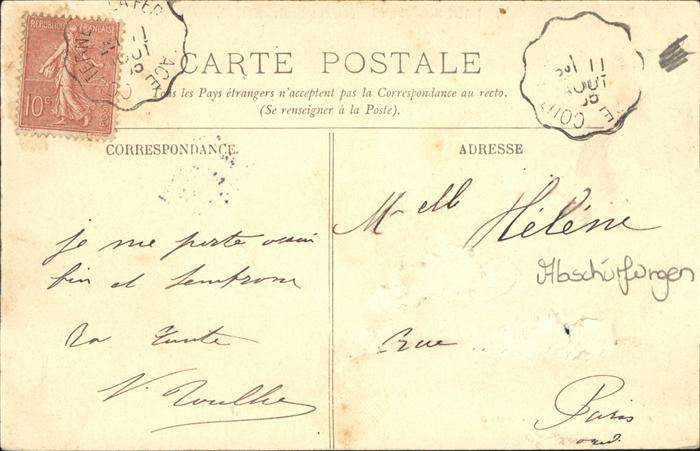 RÉPUBLIQUE FRANÇAISE
10c
11
AOUT
CARTE POSTALE
Tous les Pays étrangers n'acceptent pas la Correspondance au recto.
(Se renseigner à la Poste).
CORRESPONDANCE
ADRESSE
je me porte aussi
bien et
ta Tante
Melle Hélène
Abschürfungen
rue
Paris